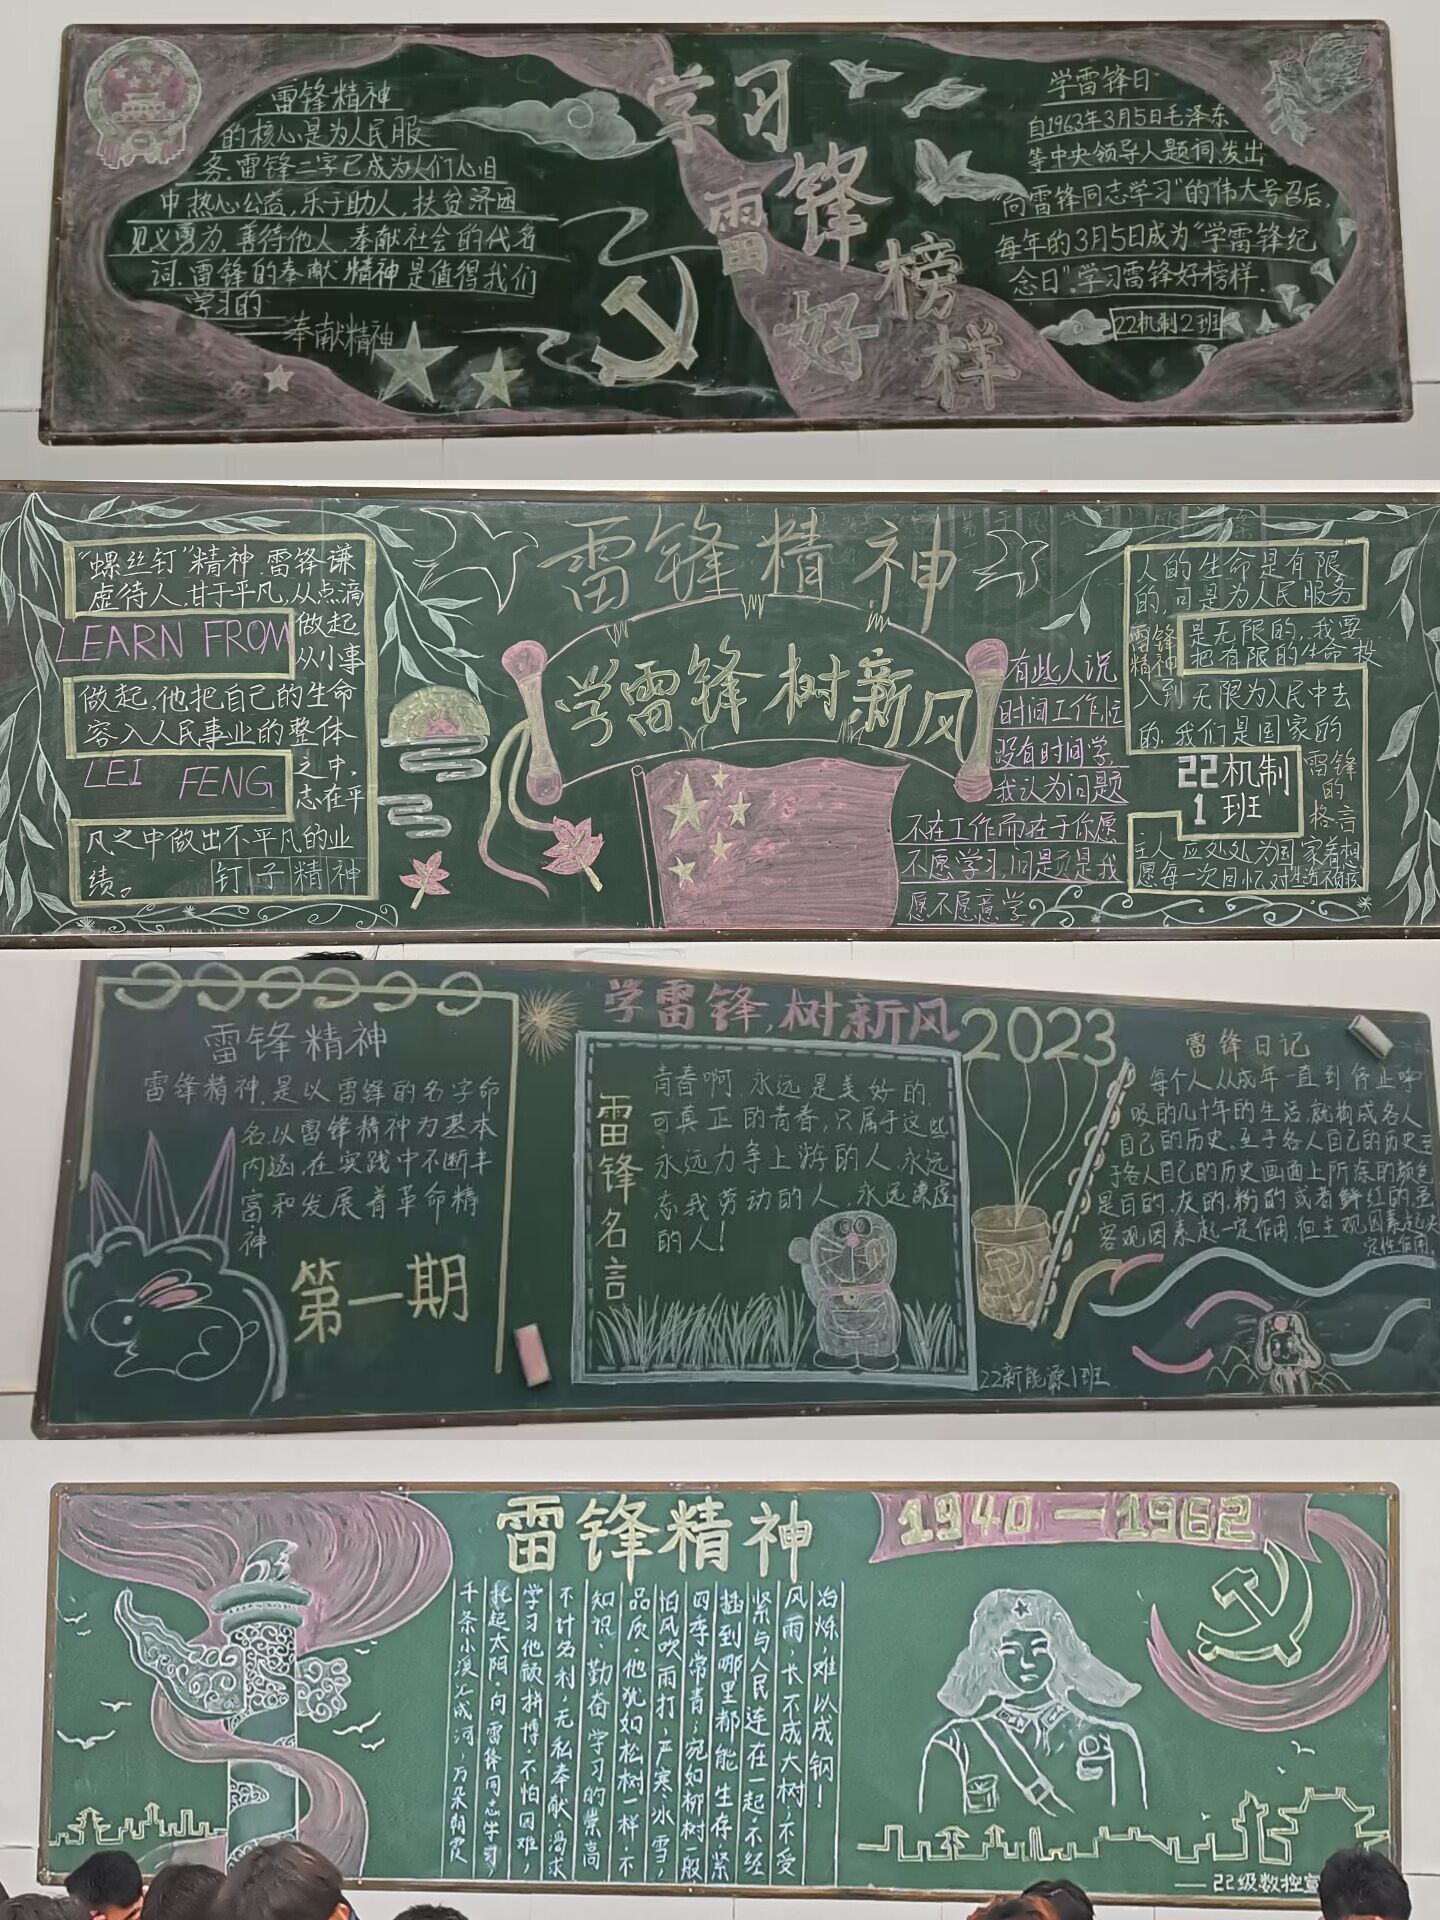 雷锋精神
的核心是为人民服
务.雷锋二字已成为人们心目
中热心公益,乐于助人,扶贫济困
见义勇为,善待他人,奉献社会的代名
词.雷锋的奉献精神是值得我们
学习的
"奉献精神
学习
雷锋
好榜样
学雷锋日
自1963年3月5日毛泽东
等中央领导人题词,发出
"向雷锋同志学习"的伟大号召后,
每年的3月5日成为"学雷锋纪
念日".学习雷锋好榜样.
22机制2班
"螺丝钉"精神.雷锋谦
虚待人,甘于平凡,从点滴
LEARN FROM
做起
从小事
做起,他把自己的生命
容入人民事业的整体
LEI FENG
之中,
志在平
凡之中做出不平凡的业
绩。
钉子精神
雷锋精神
学雷锋树新风
有些人说
时间工作忙
没有时间学,
我认为问题
不在工作而在于你愿
不愿学习,旧是
是我
愿不愿意学
人的生命是有限
的,可是为人民服务
雷锋
精神
是无限的,我要
把有限的生命投
入到无限为人民中去
的.我们是国家的
22机制
1班
雷锋
的
格言
主人,应处处为国家着想
愿每一次回忆,对生活不
学雷锋,树新风
2023
雷锋精神
雷锋精神,是以雷锋的名字命
名,以雷锋精神为基本
内涵,在实践中不断丰
富和发展着革命精
神
第一期
雷锋名言
青春啊,永远是美好的,
可真正的青春,只属于这些
永远力争上游的人,永远
忘我劳动的人,永远谦虚
的人!
雷锋日记
每个人从成年一直到停止呼
吸的几十年的生活,就构成各人
自己的历史.至于各人自己的历史
于各人自己的历史画面上所涂的颜色
是白的,灰的,粉的或者鲜红的虽
客观因素起一定作用,但主观因素起决
定性作用.
22新能源1班
雷锋精神
1940—1962
冶炼,难以成钢!
风雨,长不成大树,不受
紧与人民连在一起,不经
插到哪里都能生存,紧
四季常青,宛如柳树一般
怕风吹雨打,严寒冰雪,
品质,他犹如松树一样,不
知识,勤奋学习的崇高
不计名利,无私奉献,渴求
学习他顽拼博,不怕困难,
托起太阳,向雷锋同志学习
千条小溪汇成河,万朵朝霞
22级数控